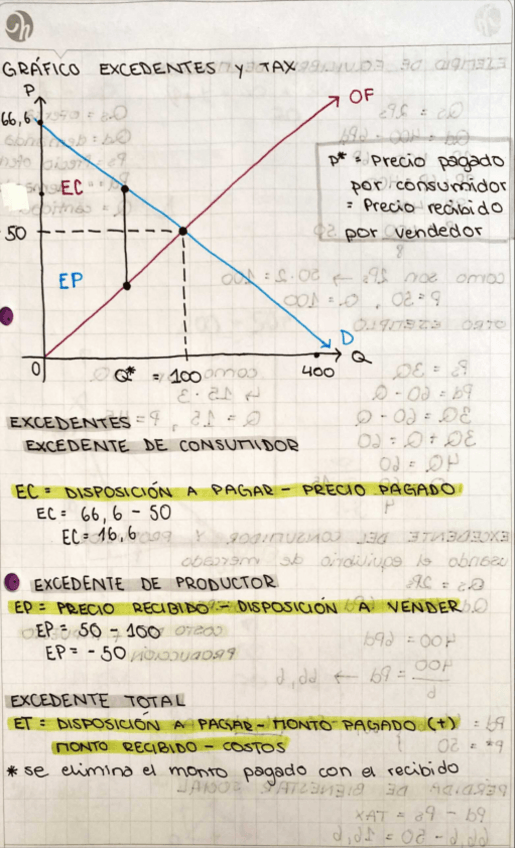 GRÁFICO EXCEDENTES y TAX
P
66,6
OF
EC
P* = Precio pagado
por consumidor
= Precio recibido
por vendedor
50
EP
D
0
Q* = 100
400
Q
EXCEDENTES
EXCEDENTE DE CONSUMIDOR
EC = DISPOSICIÓN A PAGAR - PRECIO PAGADO
EC = 66,6 - 50
EC = 16,6
EXCEDENTE DE PRODUCTOR
EP = PRECIO RECIBIDO - DISPOSICIÓN A VENDER
EP = 50 - 100
EP = - 50
EXCEDENTE TOTAL
ET = DISPOSICIÓN A PAGAR - MONTO PAGADO (+)
MONTO RECIBIDO - COSTOS
* se elimina el monto pagado con el recibido